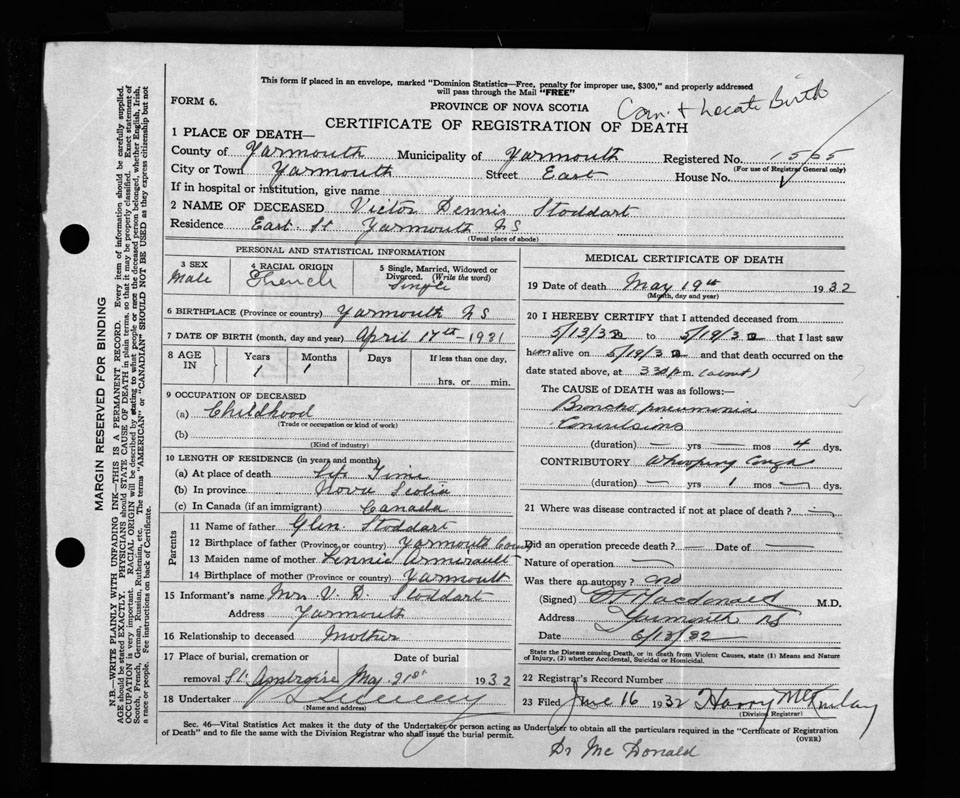 This form if placed in an envelope, marked "Dominion Statistics—Free, penalty for improper use, $300," and properly addressed
will pass through the Mail "FREE"
FORM 6.
PROVINCE OF NOVA SCOTIA
Corr. & Locate Birth
CERTIFICATE OF REGISTRATION OF DEATH
1 PLACE OF DEATH—
County of Yarmouth Municipality of Yarmouth Registered No. 1505
(For use of Registrar General only)
City or Town Yarmouth Street East House No.
If in hospital or institution, give name
2 NAME OF DECEASED Victor Dennis Stoddart
Residence East St Yarmouth NS
(Usual place of abode)
MARGIN RESERVED FOR BINDING
N.B.—WRITE PLAINLY WITH UNFADING INK—THIS IS A PERMANENT RECORD. Every item of information should be carefully supplied.
AGE should be stated EXACTLY. PHYSICIANS should STATE CAUSE OF DEATH in plain terms, so that it may be properly classified. Exact statement of
OCCUPATION is very important. RACIAL ORIGIN will be described by stating to what people or race the deceased person belonged, whether English, Irish,
Scotch, French, German, Russian, Ruthenian, etc. The terms "AMERICAN" or "CANADIAN" SHOULD NOT BE USED as they express citizenship but not
a race or people. See instructions on back of Certificate.
PERSONAL AND STATISTICAL INFORMATION
3 SEX
Male
4 RACIAL ORIGIN
French
5 Single, Married, Widowed or
Divorced. (Write the word)
Single
6 BIRTHPLACE (Province or country) Yarmouth NS
7 DATE OF BIRTH (month, day and year) April 17th - 1931
8 AGE
IN
Years Months Days If less than one day,
1 1
hrs. or min.
9 OCCUPATION OF DECEASED
(a) Childhood
(Trade or occupation or kind of work)
(b)
(Kind of industry)
10 LENGTH OF RESIDENCE (in years and months)
(a) At place of death Life Time
(b) In province Nova Scotia
(c) In Canada (if an immigrant) Canada
Parents
11 Name of father Glen Stoddart
12 Birthplace of father (Province or country) Yarmouth County
13 Maiden name of mother Amirault
14 Birthplace of mother (Province or country) Yarmouth
15 Informant's name Mrs V. D. Stoddart
Address Yarmouth
16 Relationship to deceased Mother
17 Place of burial, cremation or Date of burial
removal St. Ambroise May 21st 1932
18 Undertaker
(Name and address)
MEDICAL CERTIFICATE OF DEATH
19 Date of death May 19th 1932
(Month, day and year)
20 I HEREBY CERTIFY that I attended deceased from
5/13/32 to 5/19/32 that I last saw
him alive on 5/19/32 and that death occurred on the
date stated above, at 3.30 p.m. (about)
The CAUSE OF DEATH was as follows:
Broncho pneumonia
Convulsions
(duration) — yrs — mos 4 dys.
CONTRIBUTORY Whooping Cough
(duration) — yrs 1 mos — dys.
21 Where was disease contracted if not at place of death? —
Did an operation precede death? — Date of —
Nature of operation —
Was there an autopsy? no
(Signed) Macdonald M.D.
Address Yarmouth NS
Date 6/13/32
State the Disease causing Death, or in death from Violent Causes, state (1) Means and Nature
of Injury, (2) whether Accidental, Suicidal or Homicidal.
22 Registrar's Record Number
23 Filed June 16 1932 Harry McKinlay
(Division Registrar)
Sec. 46—Vital Statistics Act makes it the duty of the Undertaker or person acting as Undertaker to obtain all the particulars required in the "Certificate of Registration
of Death" and to file the same with the Division Registrar who shall issue the burial permit.
(OVER)
Dr Mc Donald